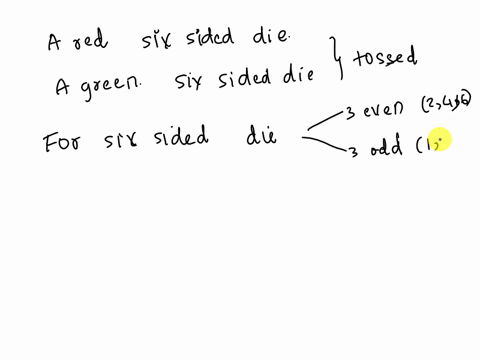 A red six sided die.
A green. six sided die } tossed
For six sided die
3 even (2,4,6)
3 odd (1,